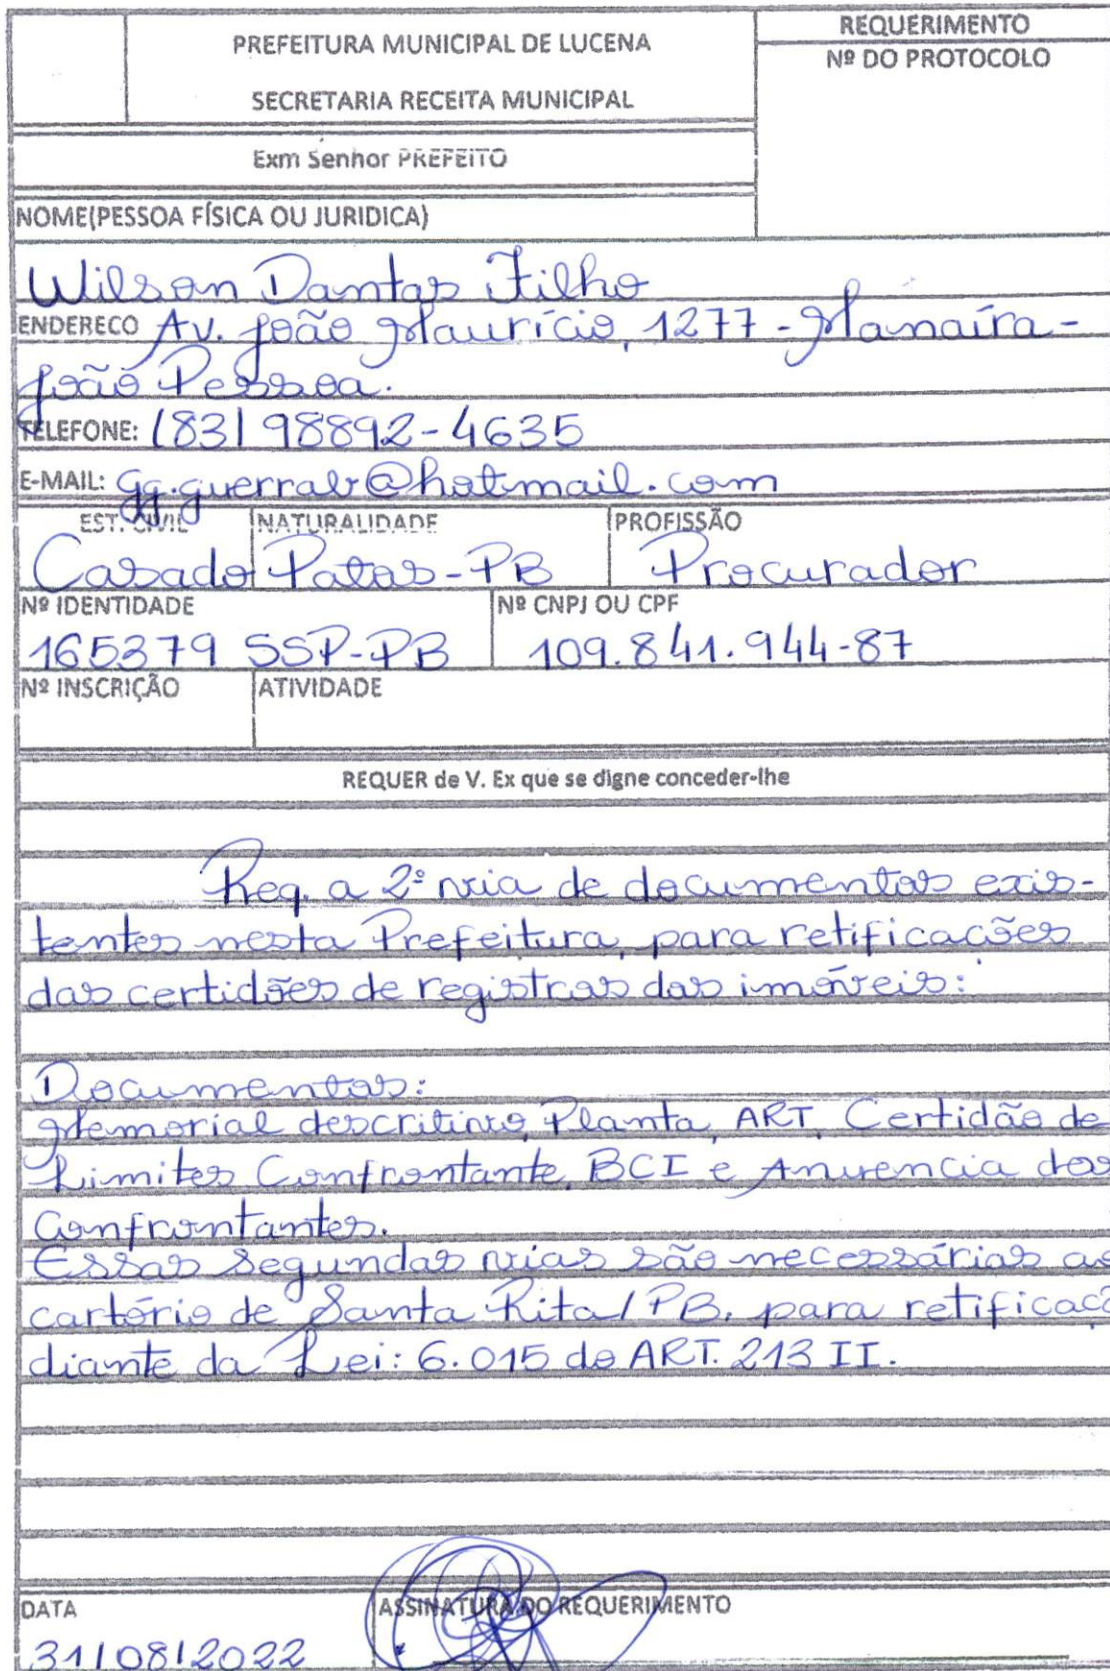 PREFEITURA MUNICIPAL DE LUCENA
SECRETARIA RECEITA MUNICIPAL
REQUERIMENTO
Nº DO PROTOCOLO
Exm Senhor PREFEITO
NOME(PESSOA FÍSICA OU JURIDICA)
Wilson Dantas Filho
ENDERECO Av. João Maurício, 1277 - Manaíra -
João Pessoa.
TELEFONE: (83) 98892-4635
E-MAIL: gg.guerrab@hotmail.com
EST. CIVIL NATURALIDADE PROFISSÃO
Casado Patos-PB Procurador
Nº IDENTIDADE Nº CNPJ OU CPF
165379 SSP-PB 109.841.944-87
Nº INSCRIÇÃO ATIVIDADE
REQUER de V. Ex que se digne conceder-lhe
Req. a 2ª via de documentos exis-
tentes nesta Prefeitura, para retificações
das certidões de registros dos imóveis:
Documentos:
Memorial descritivo, Planta, ART, Certidão de
Limites Confrontante, BCI e Anuencia dos
Confrontantes.
Essas segundas vias são necessárias ao
cartório de Santa Rita/PB, para retificaçã
diante da Lei: 6.015 do ART. 213 II.
DATA ASSINATURA DO REQUERIMENTO
31/08/2022